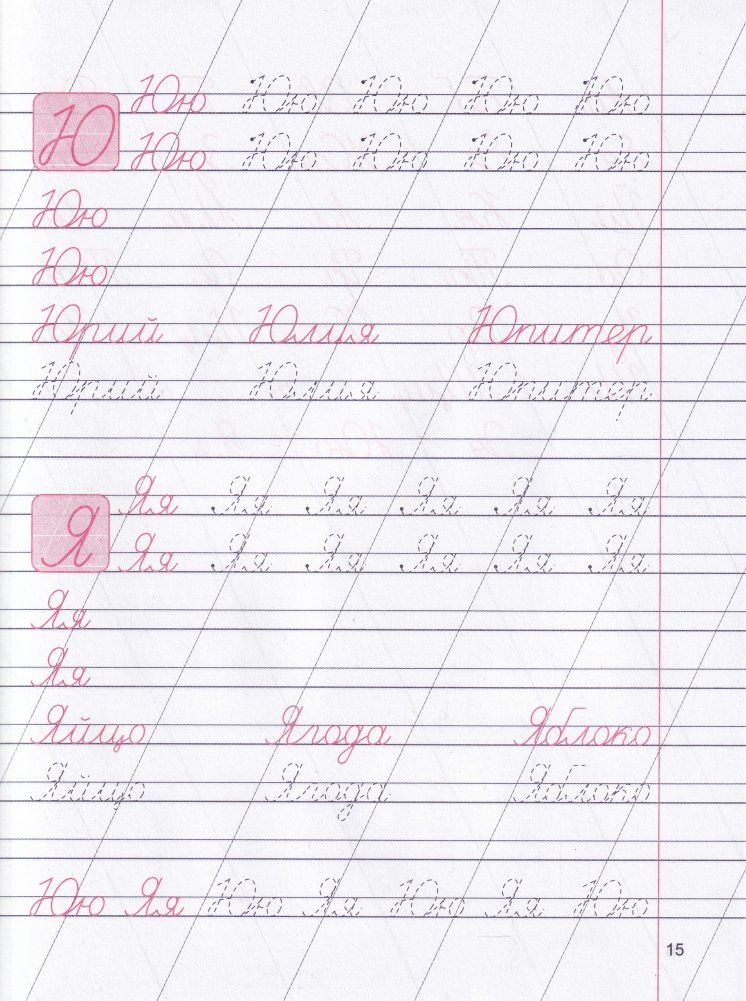 Юю Юю Юю Юю Юю
Ю
Юю Юю Юю Юю Юю
Юю
Юю
Юрий Юлия Юпитер
Юрий Юлия Юпитер
Яя Яя Яя Яя Яя Яя
Я
Яя Яя Яя Яя Яя Яя
Яя
Яя
Яйцо Ягода Яблоко
Яйцо Ягода Яблоко
Юю Яя Юю Яя Юю Яя Юю
15